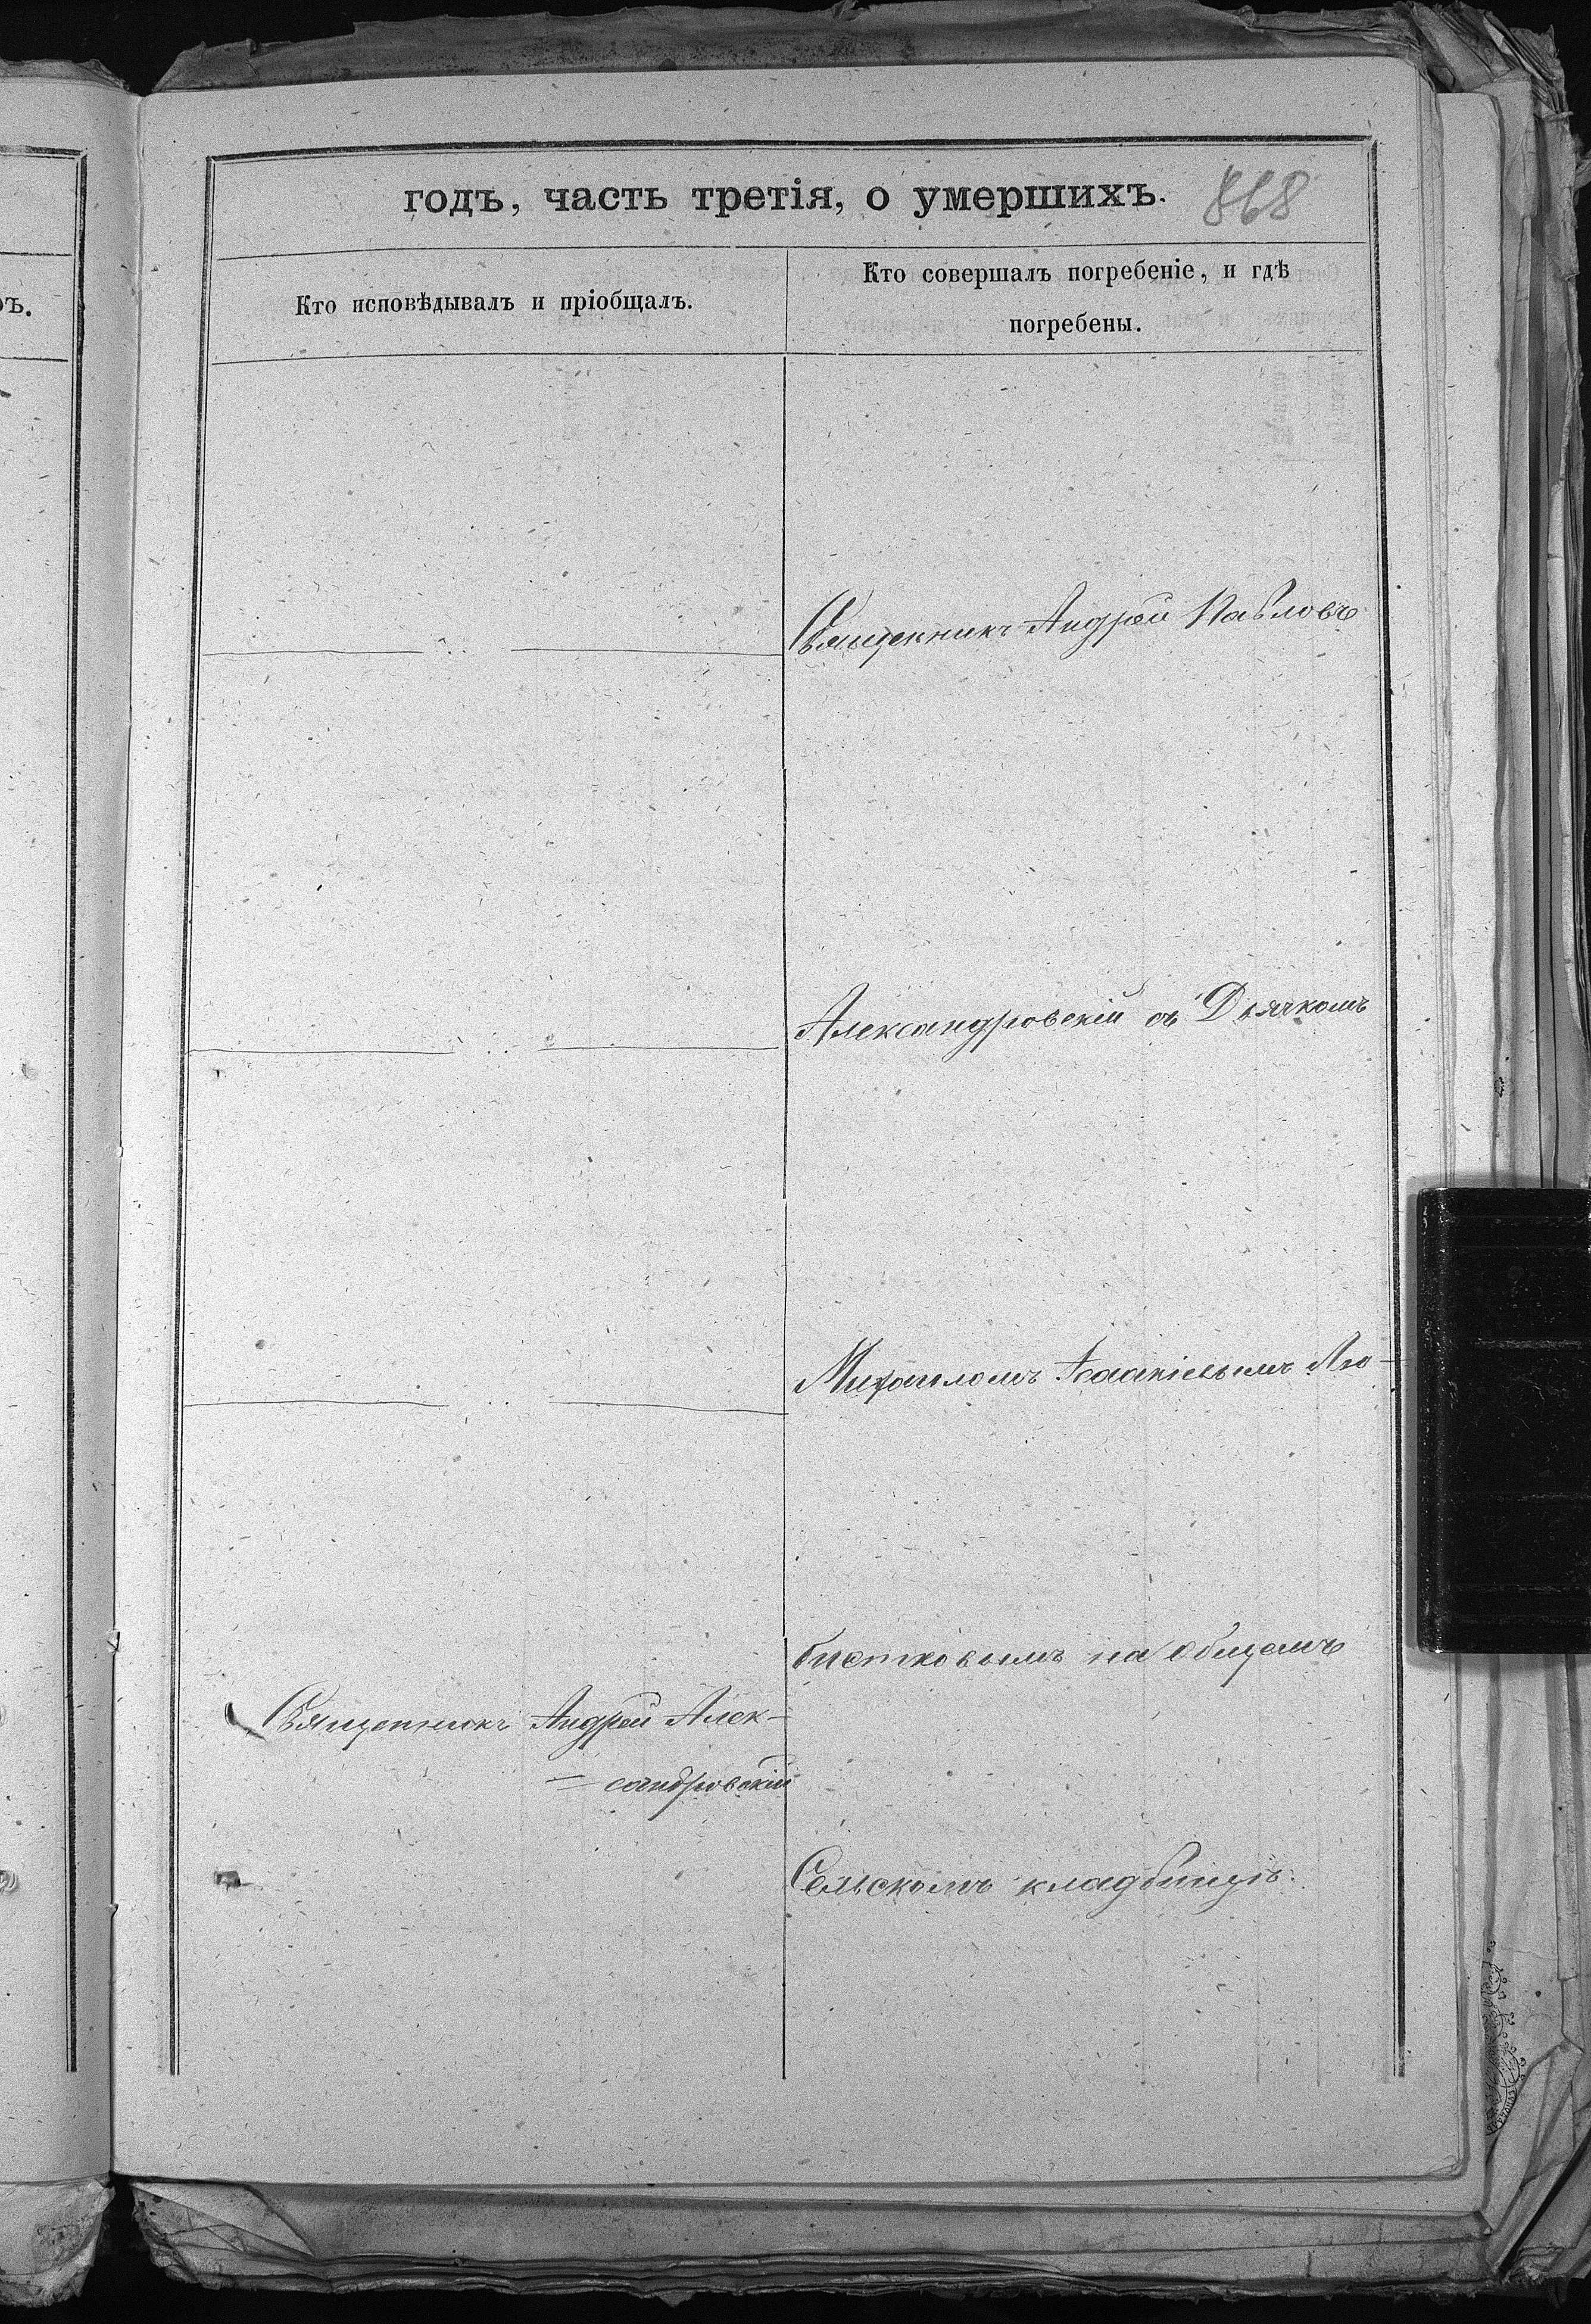 годъ, часть третія, о умершихъ. 868
Кто исповѣдывалъ и пріобщалъ.
Кто совершалъ погребеніе, и гдѣ
погребены.
Священникъ Андрей Павловъ
Александровскій съ Дьячкомъ
Михаиломъ Исаакіевымъ Лю-
бистковымъ на общемъ
Священникъ Андрей Алек-
= сандровскій
Сельскомъ кладбищѣ.
ъ.